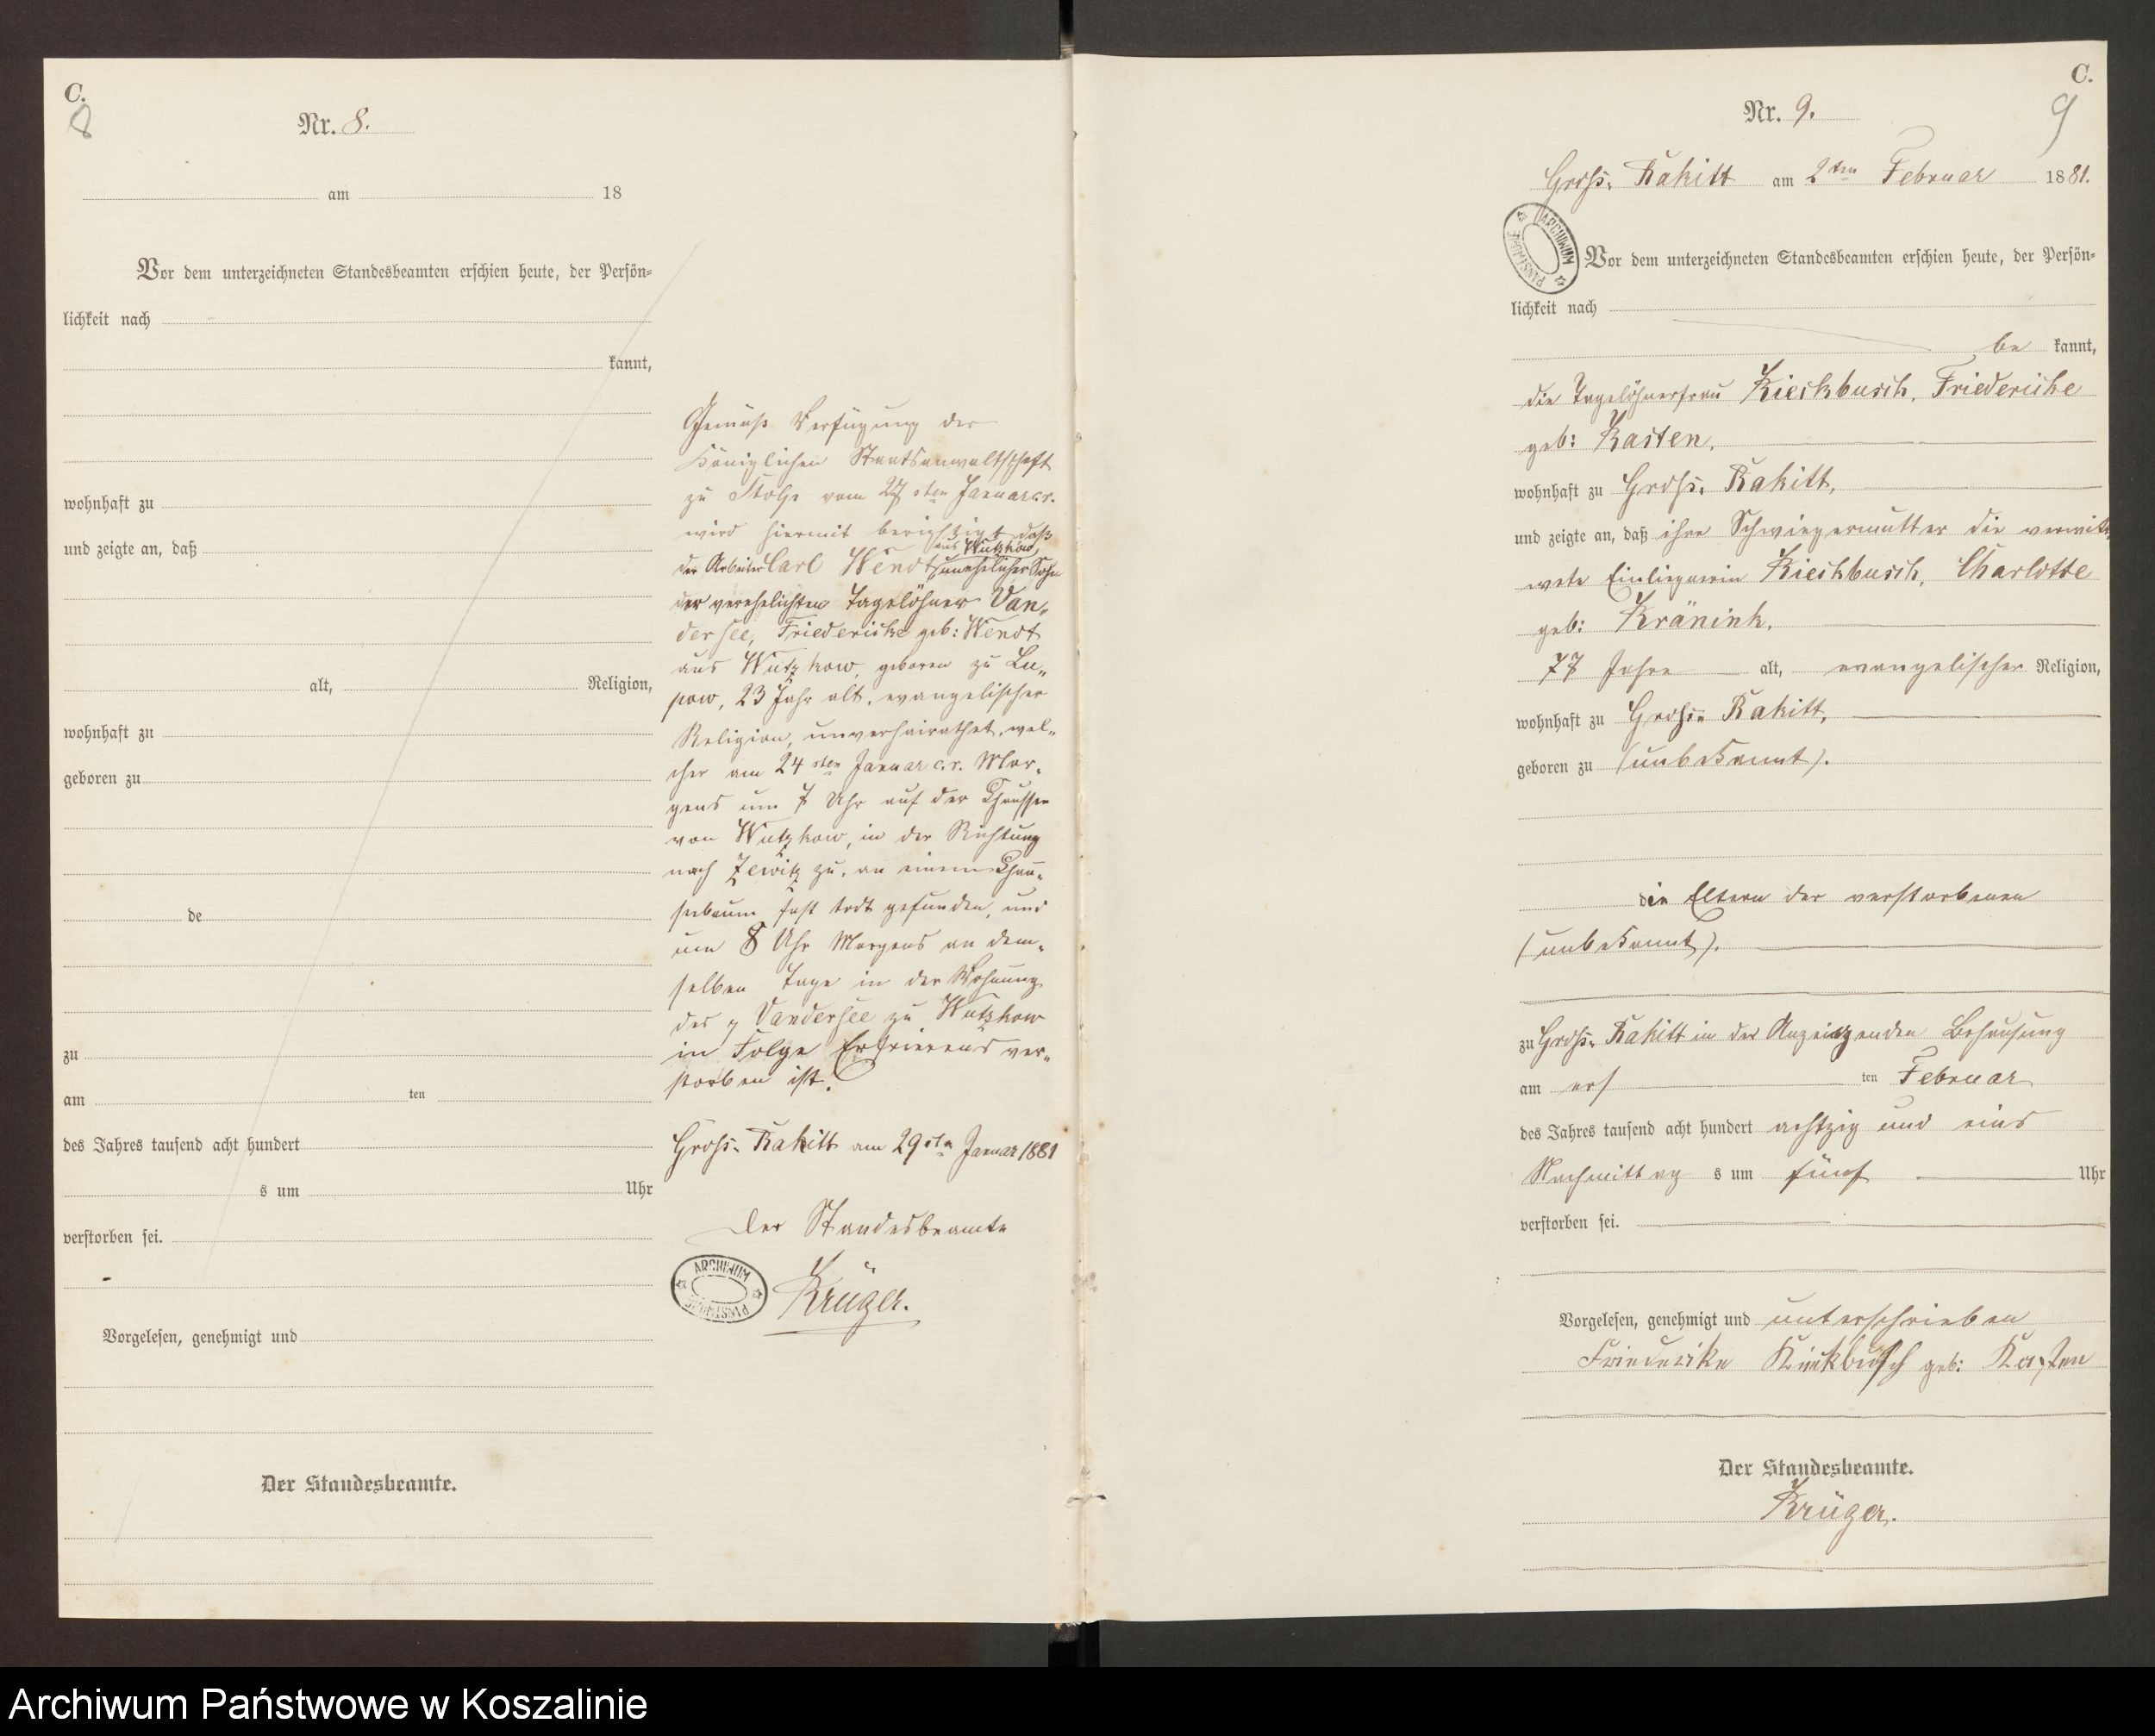 C.
8
Nr. 8.
am 18
Vor dem unterzeichneten Standesbeamten erschien heute, der Persön-
lichkeit nach
kannt,
wohnhaft zu
und zeigte an, daß
alt, Religion,
wohnhaft zu
geboren zu
de
zu
am ten
des Jahres tausend acht hundert
s um Uhr
verstorben sei.
Vorgelesen, genehmigt und
Der Standesbeamte.
Gemäß Verfügung der
Königlichen Staatsanwaltschaft
zu Stolp vom 27 sten Januar cr.
wird hiermit berichtigt, daß
aus Wutzkow,
der Arbeiter Carl Wendt, unehelicher Sohn
der verehelichten Tagelöhner Van„
dersee, Friedericke geb: Wendt
aus Wutzkow, geboren zu Lu„
pow, 23 Jahr alt, evangelischer
Religion, unverheirathet, wel„
cher am 24 sten Januar cr. Mor„
gens um 7 Uhr auf der Chaussee
von Wutzkow, in der Richtung
nach Zewitz zu, an einem Chau„
seebaum fast todt gefunden, und
um 8 Uhr Morgens an dem„
selben Tage in der Wohnung
des p Vandersee zu Wutzkow
in Folge Erfrierens ver„
storben ist.
Gross. Rakitt am 29 sten Januar 1881
Der Standesbeamte
ARCHIWUM PAŃSTWOWE
Krüger.
C.
9
Nr. 9.
Gross. Rakitt am 2 ten Februar 1881.
ARCHIWUM PAŃSTWOWE
Vor dem unterzeichneten Standesbeamten erschien heute, der Persön-
lichkeit nach
be kannt,
die Tagelöhnerfrau Kieckbusch, Friedericke
geb: Kasten,
wohnhaft zu Gross. Rakitt,
und zeigte an, daß ihre Schwiegermutter die verwitt
wete Einliegerin Kieckbusch, Charlotte
geb: Kränink,
77 Jahre alt, evangelischer Religion,
wohnhaft zu Gross. Rakitt,
geboren zu (unbekannt).
die Eltern der verstorbenen
(unbekannt).
zu Gross. Rakitt in der Anzeigenden Behausung
am ers ten Februar
des Jahres tausend acht hundert achtzig und eins
Nachmittag s um fünf Uhr
verstorben sei.
Vorgelesen, genehmigt und unterschrieben
Friederike Kiekbusch geb: Kasten
Der Standesbeamte.
Krüger.
Archiwum Państwowe w Koszalinie